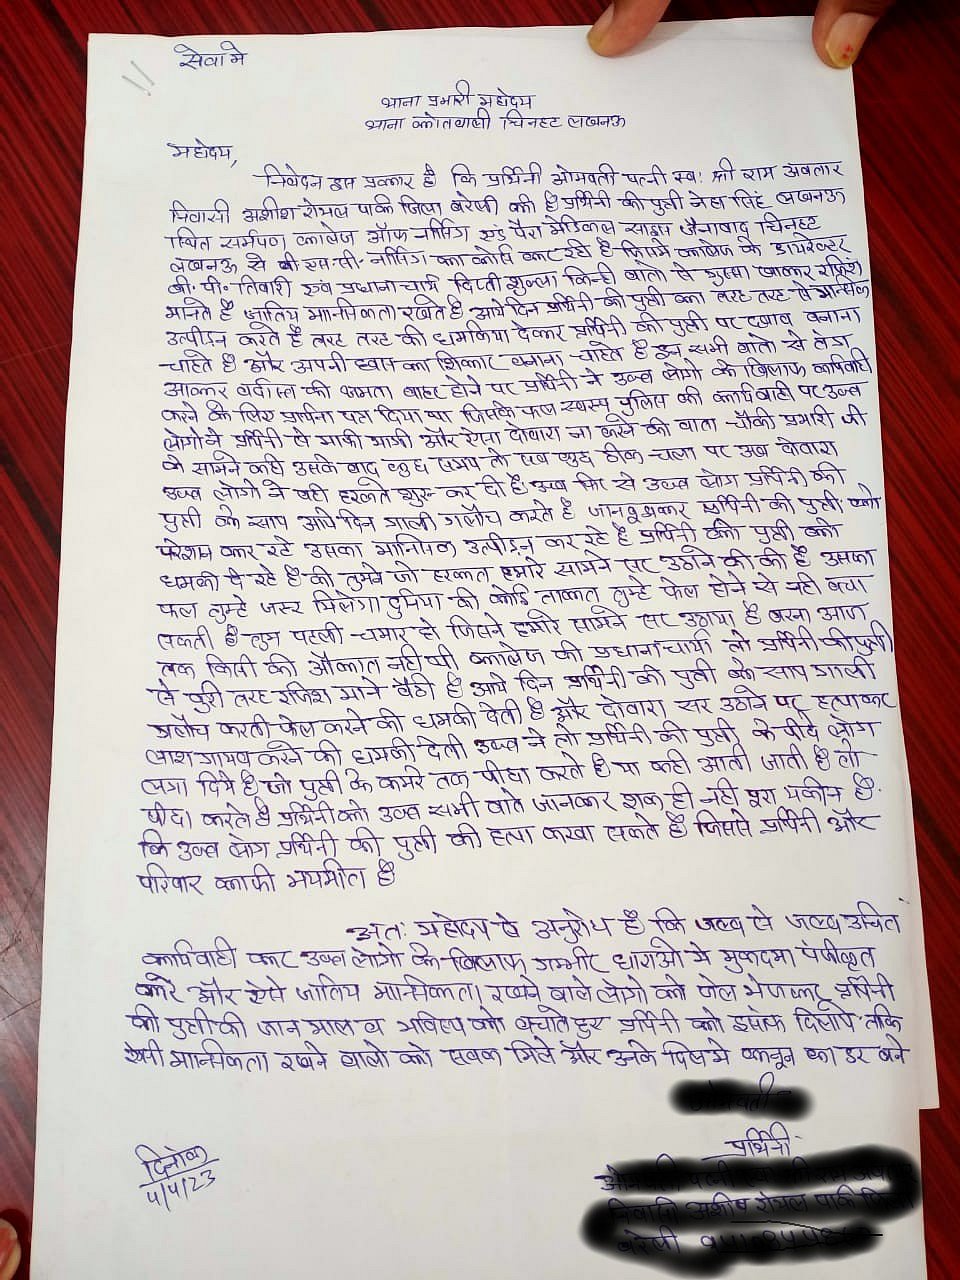 सेवा मे
थाना प्रभारी महोदय
थाना कोतवाली चिनहट लखनऊ
महोदय,
निवेदन इस प्रकार है कि प्रार्थिनी ओमवती पत्नी स्व: श्री राम अवतार
निवासी अशीश रोयल पार्क जिला बरेली की है प्रार्थिनी की पुत्री नेहा सिंह लखनऊ
स्थित सर्मपण कालेज ऑफ नर्सिग एंड पैरा मेडिकल साइंस जैनाबाद चिनहट
लखनऊ से बी एस.सी. नर्सिग का कोर्स कर रही है जिसमे कालेज के डायरेक्टर
बी. पी. तिवारी एवं प्रधानाचार्य दिप्ती शुक्ला किन्ही बातो से गुस्सा खाकर रंजिश
मानते है जातिय मानसिकता रखते है आये दिन प्रार्थिनी की पुत्री का तरह तरह से मानसिक
उत्पीड़न करते है तरह तरह की धमकिया देकर प्रार्थिनी की पुत्री पर दबाव बनाना
चाहते है और अपनी का शिकार बनाना चाहते है इन सभी बातो से तंग
आकर बर्दास्त की क्षमता बाहर होने पर प्रार्थिनी ने उक्त लोगो के खिलाफ कार्यवाही
करने के लिए प्रार्थना पत्र दिया था जिसके फल स्वरूप पुलिस की कार्यवाही पर उक्त
लोगो ने प्रार्थिनी से माफी मांगी और ऐसा दोबारा ना करने की बात चौकी प्रभारी जी
के सामने कही उसके बाद कुछ समय तो सब कुछ ठीक चला पर अब दोबारा
उक्त लोगो ने वही हरकते शुरू कर दी है। अब फिर से उक्त लोग प्रार्थिनी की
पुत्री के साथ आये दिन गाली गलौच करते है जानबूझकर प्रार्थिनी की पुत्री को
परेशान कर रहे उसका मानसिक उत्पीड़न कर रहे है प्रार्थिनी की पुत्री को
धमकी दे रहे है की तुमने जो हरकत हमारे सामने सर उठाने की की है उसका
फल तुम्हे जरूर मिलेगा दुनिया की कोई ताकत तुम्हे फेल होने से नही बचा
सकती है तुम पहली चमार हो जिसने हमारे सामने सर उठाया है वरना आज
तक किसी की औकात नही थी कालेज की प्रधानाचार्या तो प्रार्थिनी की पुत्री
से पुरी तरह रंजिश माने बैठी है आये दिन प्रार्थिनी की पुत्री के साथ गाली
गलौच करती फेल करने की धमकी देती है और दोबारा सर उठाने पर हत्या कर
लाश गायब करने की धमकी देती उक्त ने तो प्रार्थिनी की पुत्री के पीछे लोग
लगा दिये है जो पुत्री के कमरे तक पीछा करते है या कही आती जाती है तो
पीछा करते है प्रार्थिनी को उक्त सभी बाते जानकर शक ही नही पूरा यकीन है
कि उक्त लोग प्रार्थिनी की पुत्री की हत्या करवा सकते है जिससे प्रार्थिनी और
परिवार काफी भयभीत है
अत: महोदय से अनुरोध है कि जल्द से जल्द उचित
कार्यवाही कर उक्त लोगो के खिलाफ गम्भीर धाराओ मे मुकादमा पंजीकृत
करे और ऐसे जातिय मानसिकता रखने वाले लोगो को जेल भेजकर प्रार्थिनी
की पुत्री की जान माल व भविष्य को बचाते हुए प्रार्थिनी को इंसाफ दिलाये ताकि
ऐसी मानसिकता रखने वालो को सबक मिले और उनके दिल मे कानून का डर बने
प्रार्थिनी
दिनांक
4/4/23